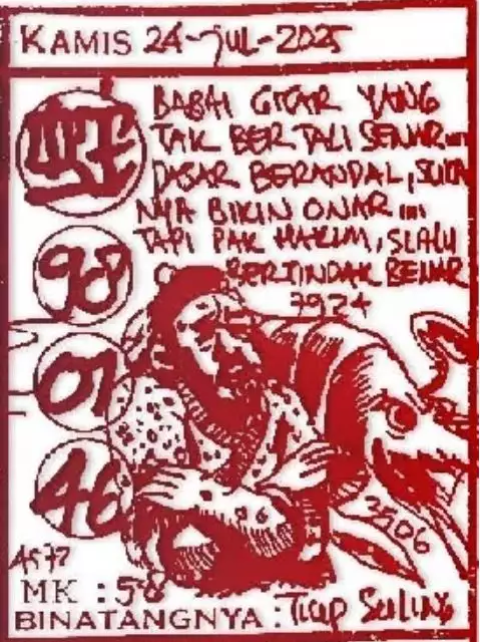 KAMIS 24-JUL-2025
BABAI GITAR YANG
TAK BERTALI SENAR...
DASAR BERANDAL, SUKA
NYA BIKIN ONAR...
TAPI PAK HAKIM, SLALU
BERTINDAK BENAR
7924
98
01
46
3506
MK : 58
BINATANGNYA :